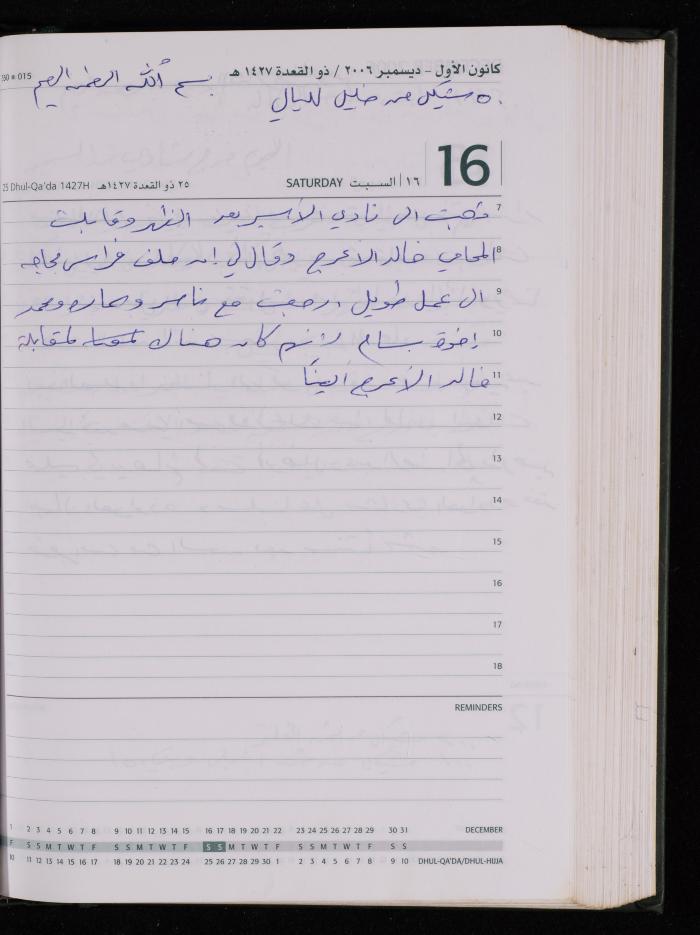 350 ■ 015
كانون الأول - ديسمبر ٢٠٠٦ / ذو القعدة ١٤٢٧ هـ
بسم الله الرحمن الرحيم
٥٠ شيكل من خليل لليالي
16
25 Dhul-Qa'da 1427H ٢٥ ذو القعدة ١٤٢٧هـ SATURDAY السبت | ١٦
7 ذهبت الى نادي الأسير بعد الظهر وقابلت
8 المحامي خالد الأعرج وقال لي إن ملف فراس بحاجه
9 الى عمل طويل رجعت مع ناصر و ومحمد
10 إخوة بسام لأنهم كان هناك لمقابلة
11 خالد الأعرج أيضاً
12
13
14
15
16
17
18
REMINDERS
1 2 3 4 5 6 7 8 9 10 11 12 13 14 15 16 17 18 19 20 21 22 23 24 25 26 27 28 29 30 31 DECEMBER
F S S M T W T F S S M T W T F S S M T W T F S S M T W T F S S
10 11 12 13 14 15 16 17 18 19 20 21 22 23 24 25 26 27 28 29 30 1 2 3 4 5 6 7 8 9 10 DHUL-QA'DA/DHUL-HIJJA